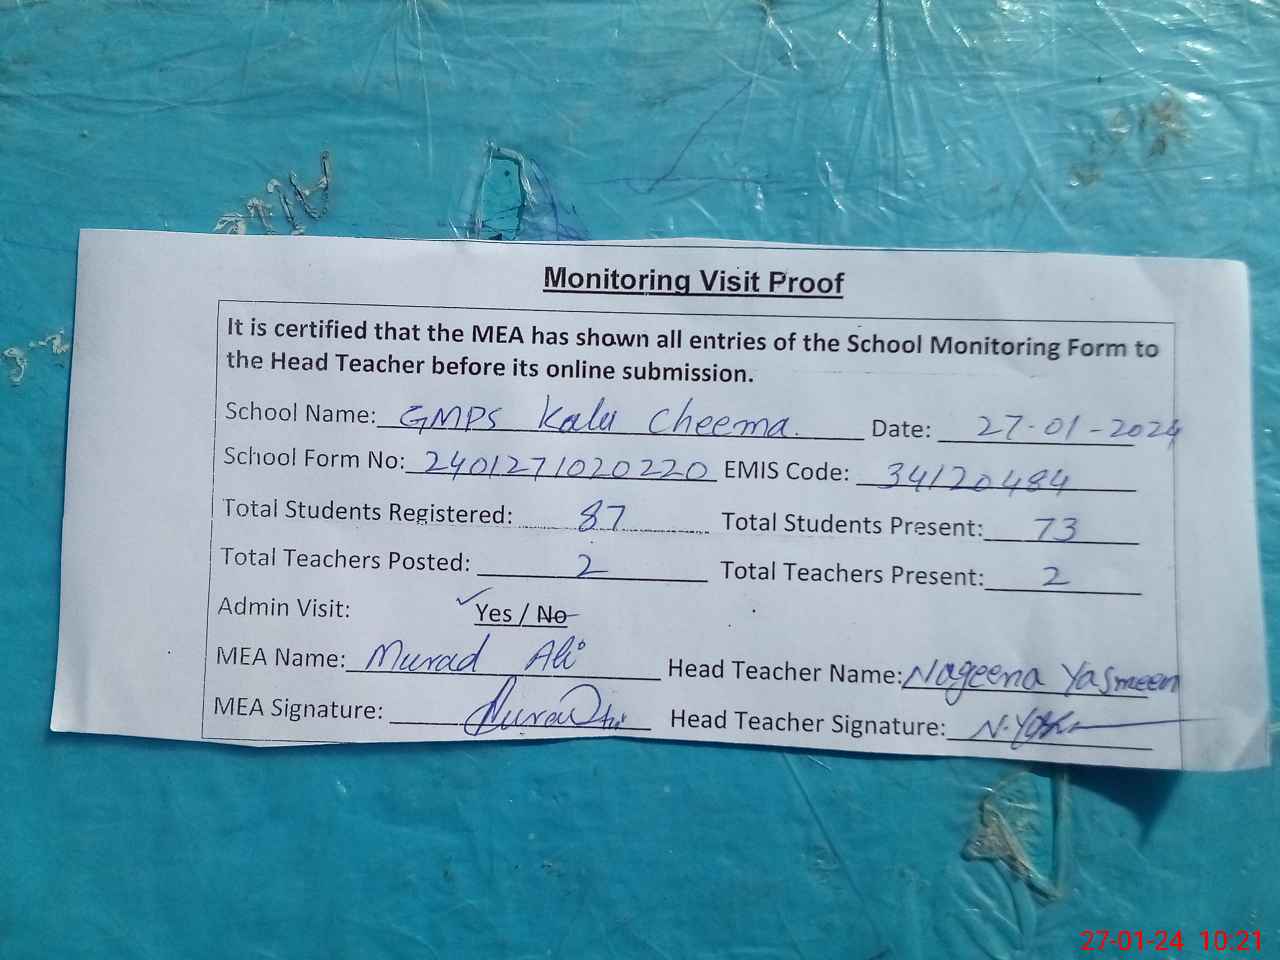 Monitoring Visit Proof
It is certified that the MEA has shown all entries of the School Monitoring Form to
the Head Teacher before its online submission.
School Name: GMPS Kalu Cheema. Date: 27-01-2024
School Form No: 2401271020220 EMIS Code: 34120484
Total Students Registered: 87 Total Students Present: 73
Total Teachers Posted: 2 Total Teachers Present: 2
Admin Visit: Yes / No
MEA Name: Murad Ali Head Teacher Name: Nageena Yasmeen
MEA Signature: Head Teacher Signature:
27-01-24 10:21